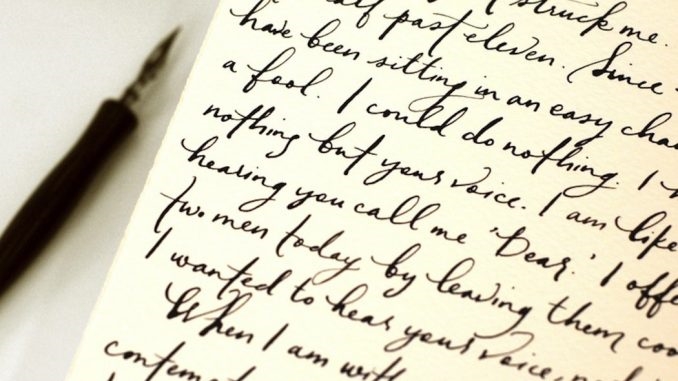 struck me.
half past eleven. Since
have been sitting in an easy cha
a fool. I could do nothing. I
nothing but your voice. I am like
hearing you call me 'Dear.' I offe
two men today by leaving them coo
I wanted to hear your voice,
When I am with
contem